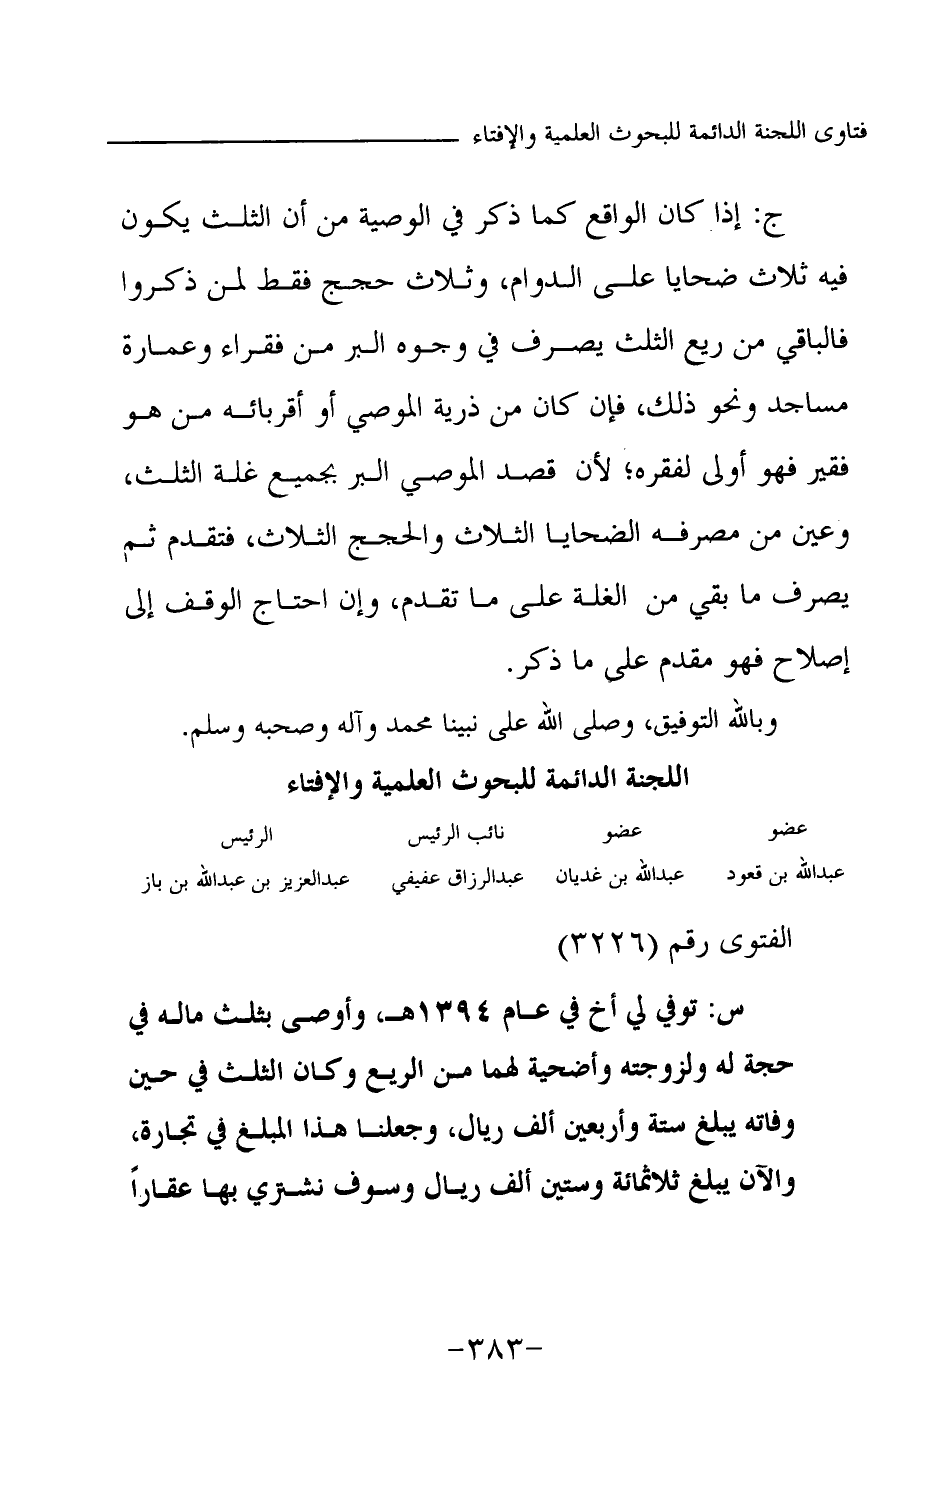 فتاوى اللجنة الدائمة للبحوث العلمية والإفتاء
ج: إذا كان الواقع كما ذكر في الوصية من أن الثلث يكون
فيه ثلاث ضحايا على الدوام، وثلاث حجج فقط لمن ذكروا
فالباقي من ريع الثلث يصرف في وجوه البر من فقراء وعمارة
مساجد ونحو ذلك، فإن كان من ذرية الموصي أو أقربائه من هو
فقير فهو أولى لفقره؛ لأن قصد الموصي البر بجميع غلة الثلث،
وعين من مصرفه الضحايا الثلاث والحجج الثلاث، فتقدم ثم
يصرف ما بقي من الغلة على ما تقدم، وإن احتاج الوقف إلى
إصلاح فهو مقدم على ما ذكر.
وبالله التوفيق، وصلى الله على نبينا محمد وآله وصحبه وسلم.
اللجنة الدائمة للبحوث العلمية والإفتاء
عضو عضو نائب الرئيس الرئيس
عبدالله بن قعود عبدالله بن غديان عبدالرزاق عفيفي عبدالعزيز بن عبدالله بن باز
الفتوى رقم (٣٢٢٦)
س: توفي لي أخ في عام ١٣٩٤هـ، وأوصى بثلث ماله في
حجة له ولزوجته وأضحية لهما من الريع وكان الثلث في حين
وفاته يبلغ ستة وأربعين ألف ريال، وجعلنا هذا المبلغ في تجارة،
والآن يبلغ ثلاثمائة وستين ألف ريال وسوف نشتري بها عقاراً
-٣٨٣-